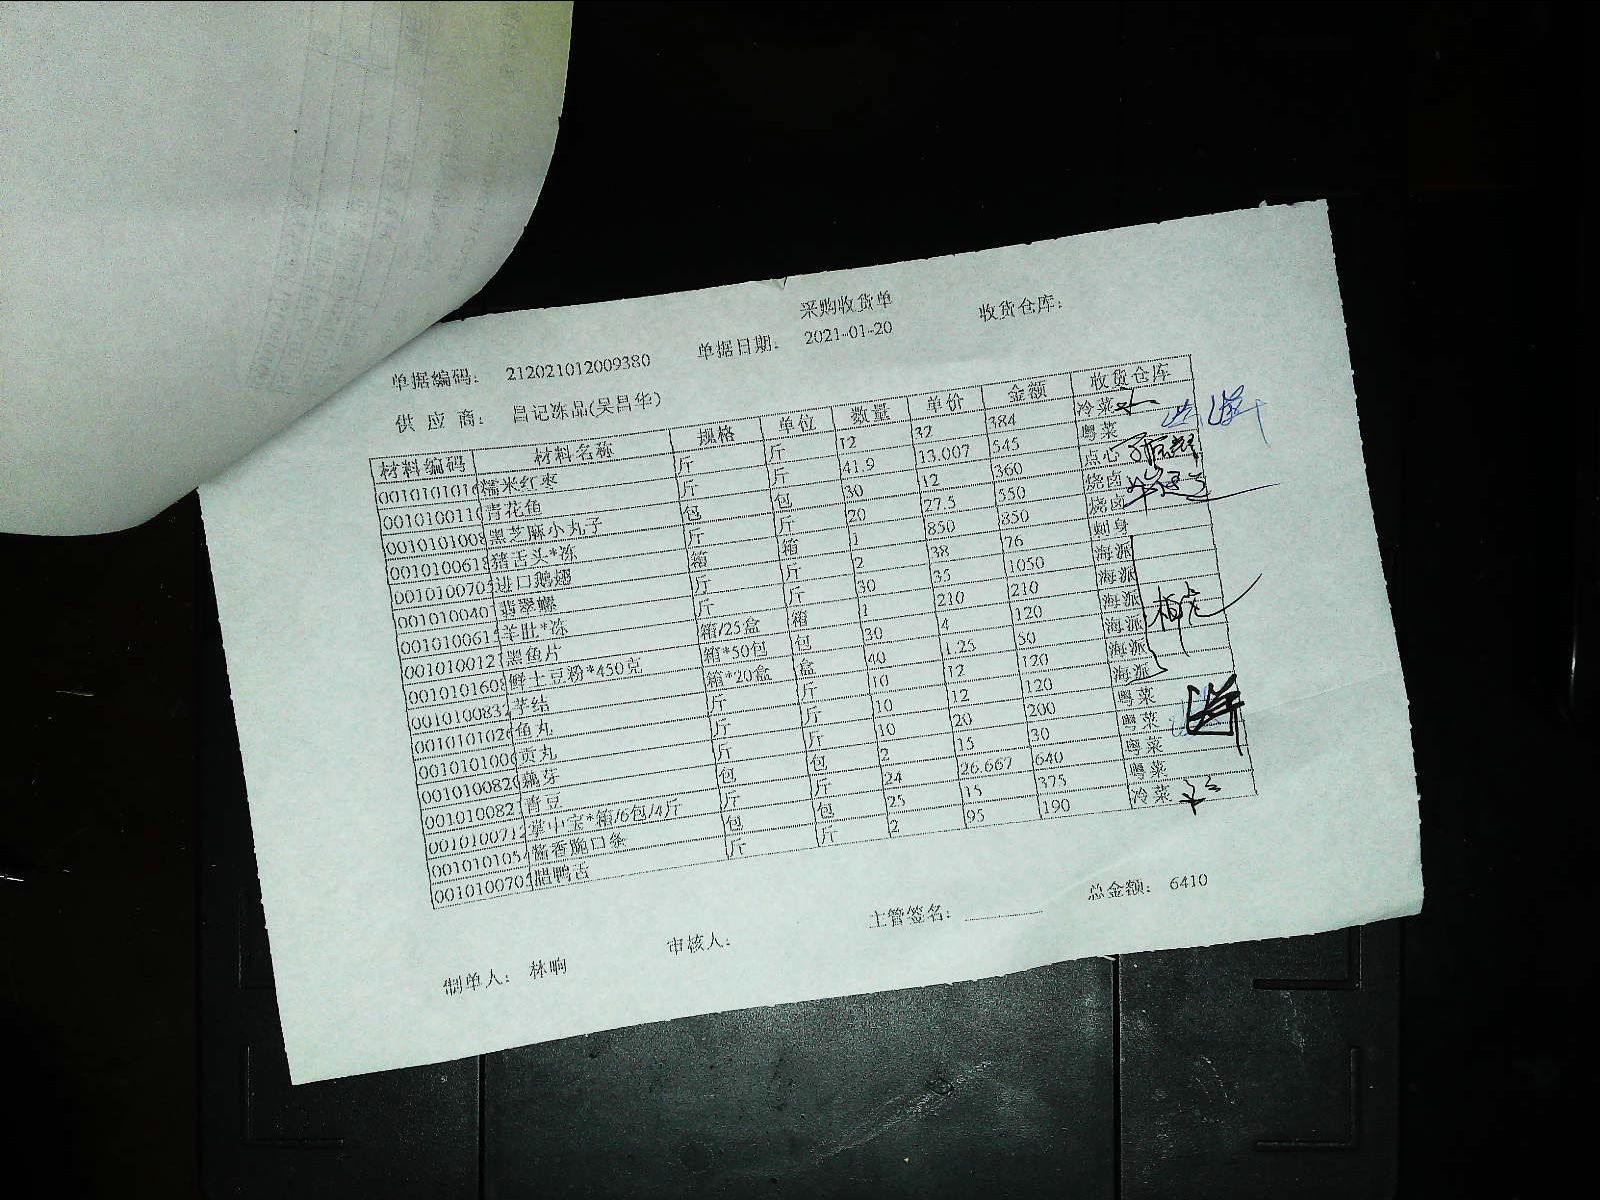 采购收货单
单据编码: 212021012009380 单据日期: 2021-01-20 收货仓库:
供应商: 昌记冻品(吴昌华)
材料编码 材料名称 规格 单位 数量 单价 金额 收货仓库
0010101016 糯米红枣 斤 斤 12 32 384 冷菜
0010100110 青花鱼 斤 斤 41.9 13.007 545 粤菜
0010101008 黑芝麻小丸子 包 包 30 12 360 点心
0010100618 猪舌头*冻 斤 斤 20 27.5 550 烧卤
001010070 进口鹅翅 箱 箱 1 850 850 烧卤
001010040 翡翠螺 斤 斤 2 38 76 刺身
001010061 羊肚*冻 斤 斤 30 35 1050 海派
001010012 黑鱼片 箱/25盒 箱 1 210 210 海派
0010101608 鲜土豆粉*450克 箱*50包 包 30 4 120 海派
001010083 芋结 箱*20盒 盒 40 1.25 50 海派
0010101026 鱼丸 斤 斤 10 12 120 海派
001010100 贡丸 斤 斤 10 12 120 海派
001010082 藕芽 斤 斤 10 20 200 粤菜
001010082 青豆 包 包 2 15 30 粤菜
001010071 掌中宝*箱/6包/4斤 斤 斤 24 26.667 640 粤菜
001010105 酱香脆口条 包 包 25 15 375 粤菜
001010070 腊鸭舌 斤 斤 2 95 190 冷菜
总金额: 6410
制单人: 林响 审核人: 主管签名: